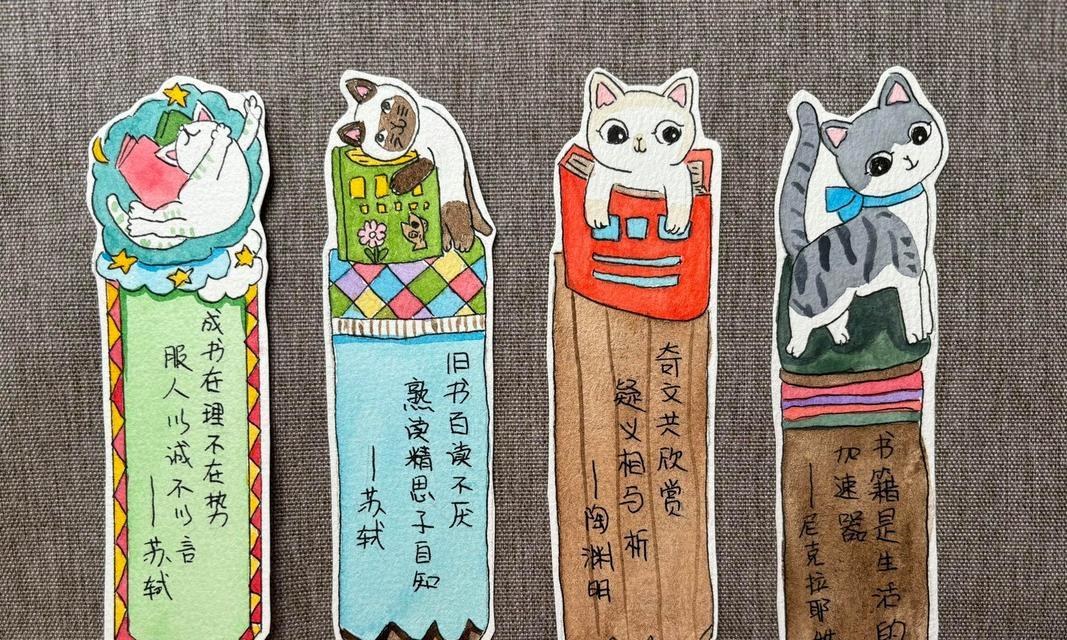 成书在理不在势
服人以诚不以言
—苏轼
旧书百读不厌
熟读精思子自知
—苏轼
奇文共欣赏
疑义相与析
—陶渊明
书籍是生活的
加速器
—尼克拉耶